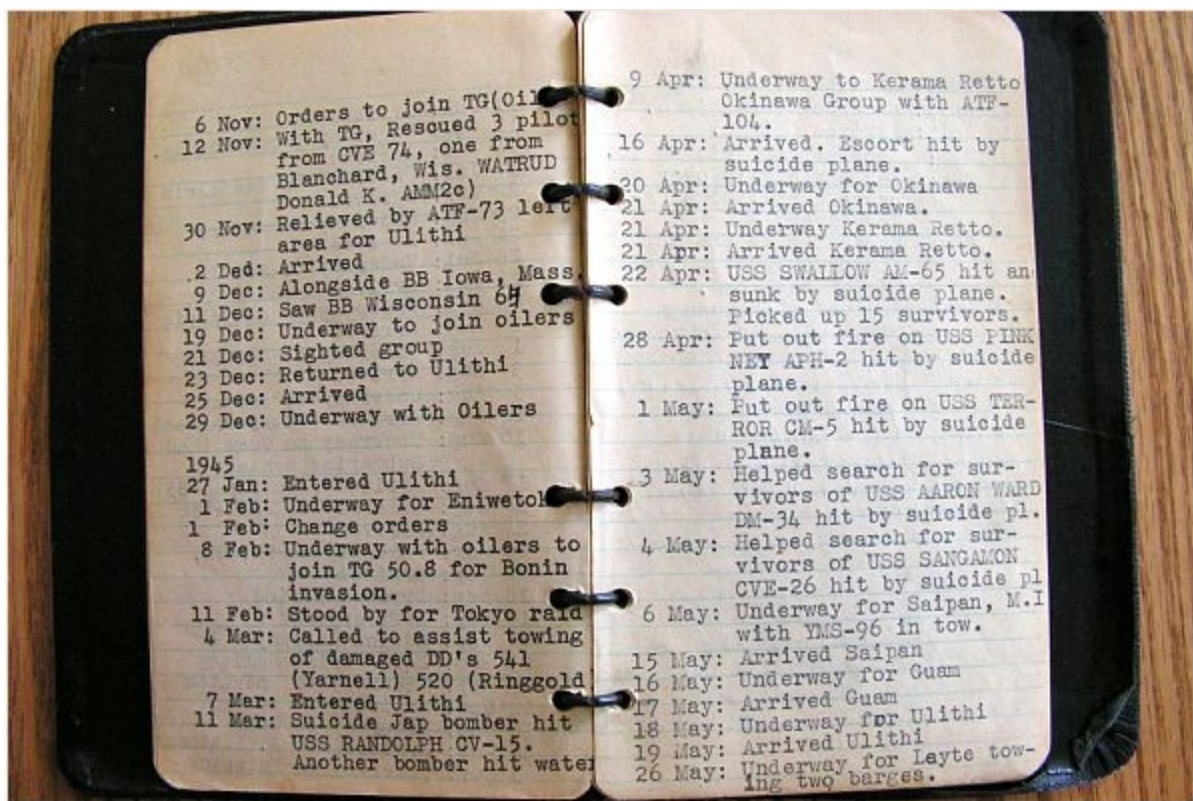 6 Nov: Orders to join TG(Oil
12 Nov: With TG, Rescued 3 pilot
from CVE 74, one from
Blanchard, Wis. WATRUD
Donald K. AMM2c)
30 Nov: Relieved by ATF-73 left
area for Ulithi
2 Ded: Arrived
9 Dec: Alongside BB Iowa, Mass.
11 Dec: Saw BB Wisconsin 64
19 Dec: Underway to join oilers
21 Dec: Sighted group
23 Dec: Returned to Ulithi
25 Dec: Arrived
29 Dec: Underway with Oilers
1945
27 Jan: Entered Ulithi
1 Feb: Underway for Eniwetok
1 Feb: Change orders
8 Feb: Underway with oilers to
join TG 50.8 for Bonin
invasion.
11 Feb: Stood by for Tokyo raid
4 Mar: Called to assist towing
of damaged DD's 541
(Yarnell) 520 (Ringgold
7 Mar: Entered Ulithi
11 Mar: Suicide Jap bomber hit
USS RANDOLPH CV-15.
Another bomber hit water
9 Apr: Underway to Kerama Retto
Okinawa Group with ATF-
104.
16 Apr: Arrived. Escort hit by
suicide plane.
20 Apr: Underway for Okinawa
21 Apr: Arrived Okinawa.
21 Apr: Underway Kerama Retto.
21 Apr: Arrived Kerama Retto.
22 Apr: USS SWALLOW AM-65 hit an
sunk by suicide plane.
Picked up 15 survivors.
28 Apr: Put out fire on USS PINK
NEY APH-2 hit by suicide
plane.
1 May: Put out fire on USS TER-
ROR CM-5 hit by suicide
plane.
3 May: Helped search for sur-
vivors of USS AARON WARD
DM-34 hit by suicide pl.
4 May: Helped search for sur-
vivors of USS SANGAMON
CVE-26 hit by suicide pl
6 May: Underway for Saipan, M.I
with YMS-96 in tow.
15 May: Arrived Saipan
16 May: Underway for Guam
17 May: Arrived Guam
18 May: Underway for Ulithi
19 May: Arrived Ulithi
26 May: Underway for Leyte tow-
ing two barges.